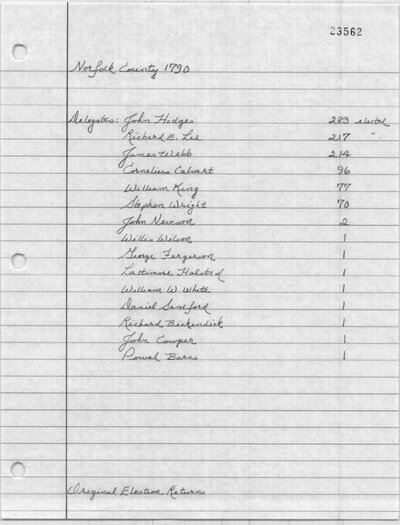 23562
Norfolk County 1790
Delegates: John Hodges 283 elected
Richard E. Lee 217 "
James Webb 214
Cornelius Calvert 96
William King 77
Stephen Wright 70
John Nevison 2
Willis Wilson 1
George Fergerson 1
Lattimore Halsted 1
William W White 1
Daniel Sandford 1
Richard Bickendick 1
John Cowper 1
Powal Barns 1
Original Election Returns